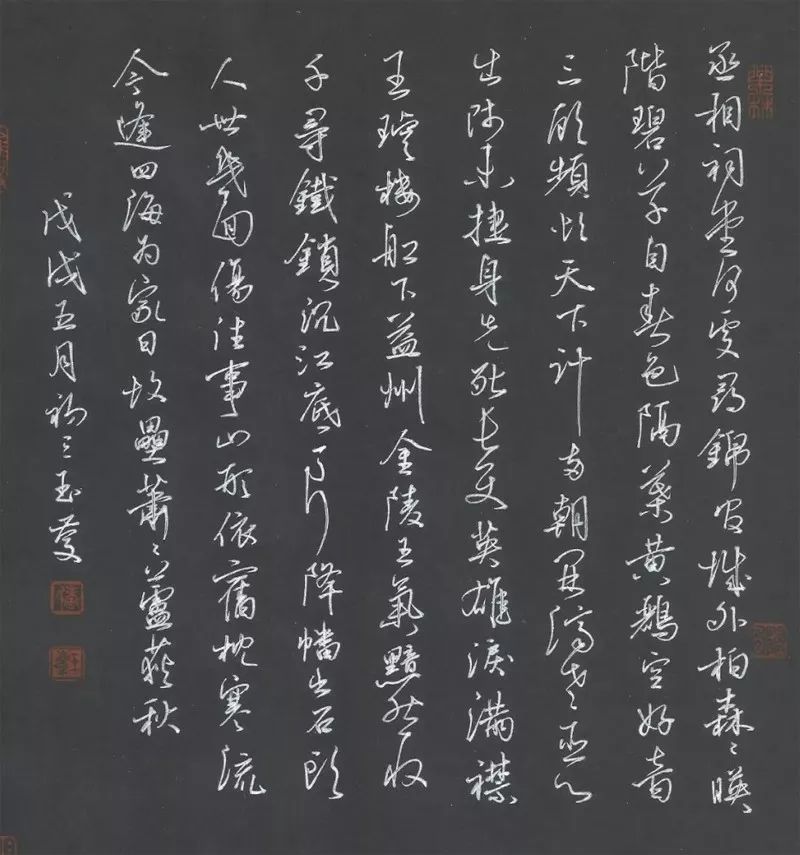 丞相祠堂何處尋錦官城外柏森〻映
階碧草自春色隔葉黃鸝空好音
三顧頻煩天下計兩朝開濟老臣心
出師未捷身先死長使英雄淚滿襟
王璿樓船下益州金陵王氣黯然收
千尋鐵鎖沉江底一片降幡出石頭
人世幾回傷往事山形依舊枕寒流
今逢四海為家日故壘蕭〻蘆荻秋
戊戌五月初三玉